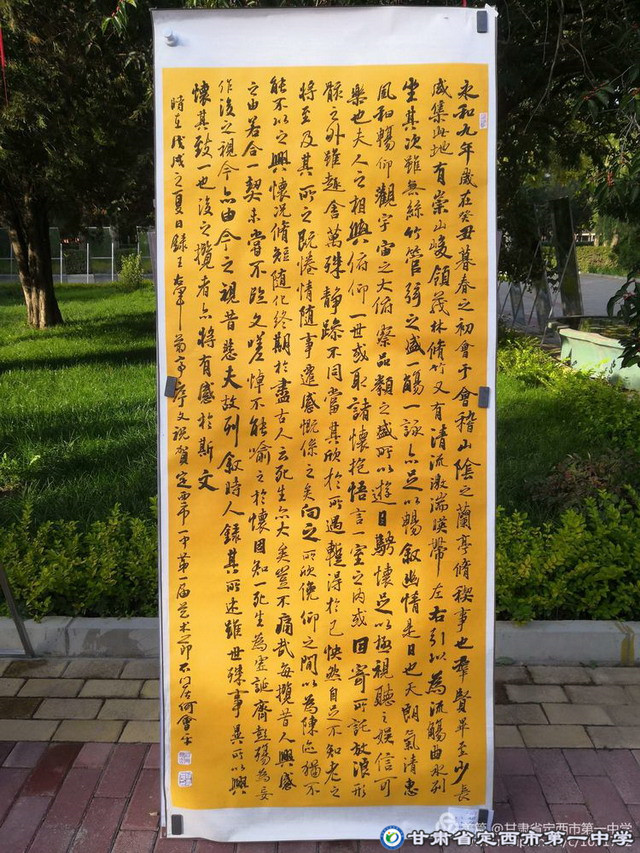 永和九年歲在癸丑暮春之初會于會稽山陰之蘭亭脩稧事也群賢畢至少長
咸集此地有崇山峻領茂林脩竹又有清流激湍暎帶左右引以為流觴曲水列
坐其次雖無絲竹管弦之盛一觴一詠亦足以暢敘幽情是日也天朗氣清惠
風和暢仰觀宇宙之大俯察品類之盛所以遊目騁懷足以極視聽之娛信可
樂也夫人之相與俯仰一世或取諸懷抱悟言一室之內或因寄所託放浪形
骸之外雖趣舍萬殊靜躁不同當其欣於所遇暫得於己快然自足不知老之
將至及其所之既惓情隨事遷感慨係之矣向之所欣俛仰之間以為陳迹猶不
能不以之興懷況脩短隨化終期於盡古人云死生亦大矣豈不痛哉每攬昔人興感
之由若合一契未嘗不臨文嗟悼不能喻之於懷固知一死生為虛誕齊彭殤為妄
作後之視今亦由今之視昔悲夫故列敘時人錄其所述雖世殊事異所以興
懷其致一也後之攬者亦將有感於斯文
時在戊戌之夏日錄王右軍蘭亭序文祝賀定西市一中第一届艺术节
@甘肃省定西市第一中学
甘肃省定西市第一中学